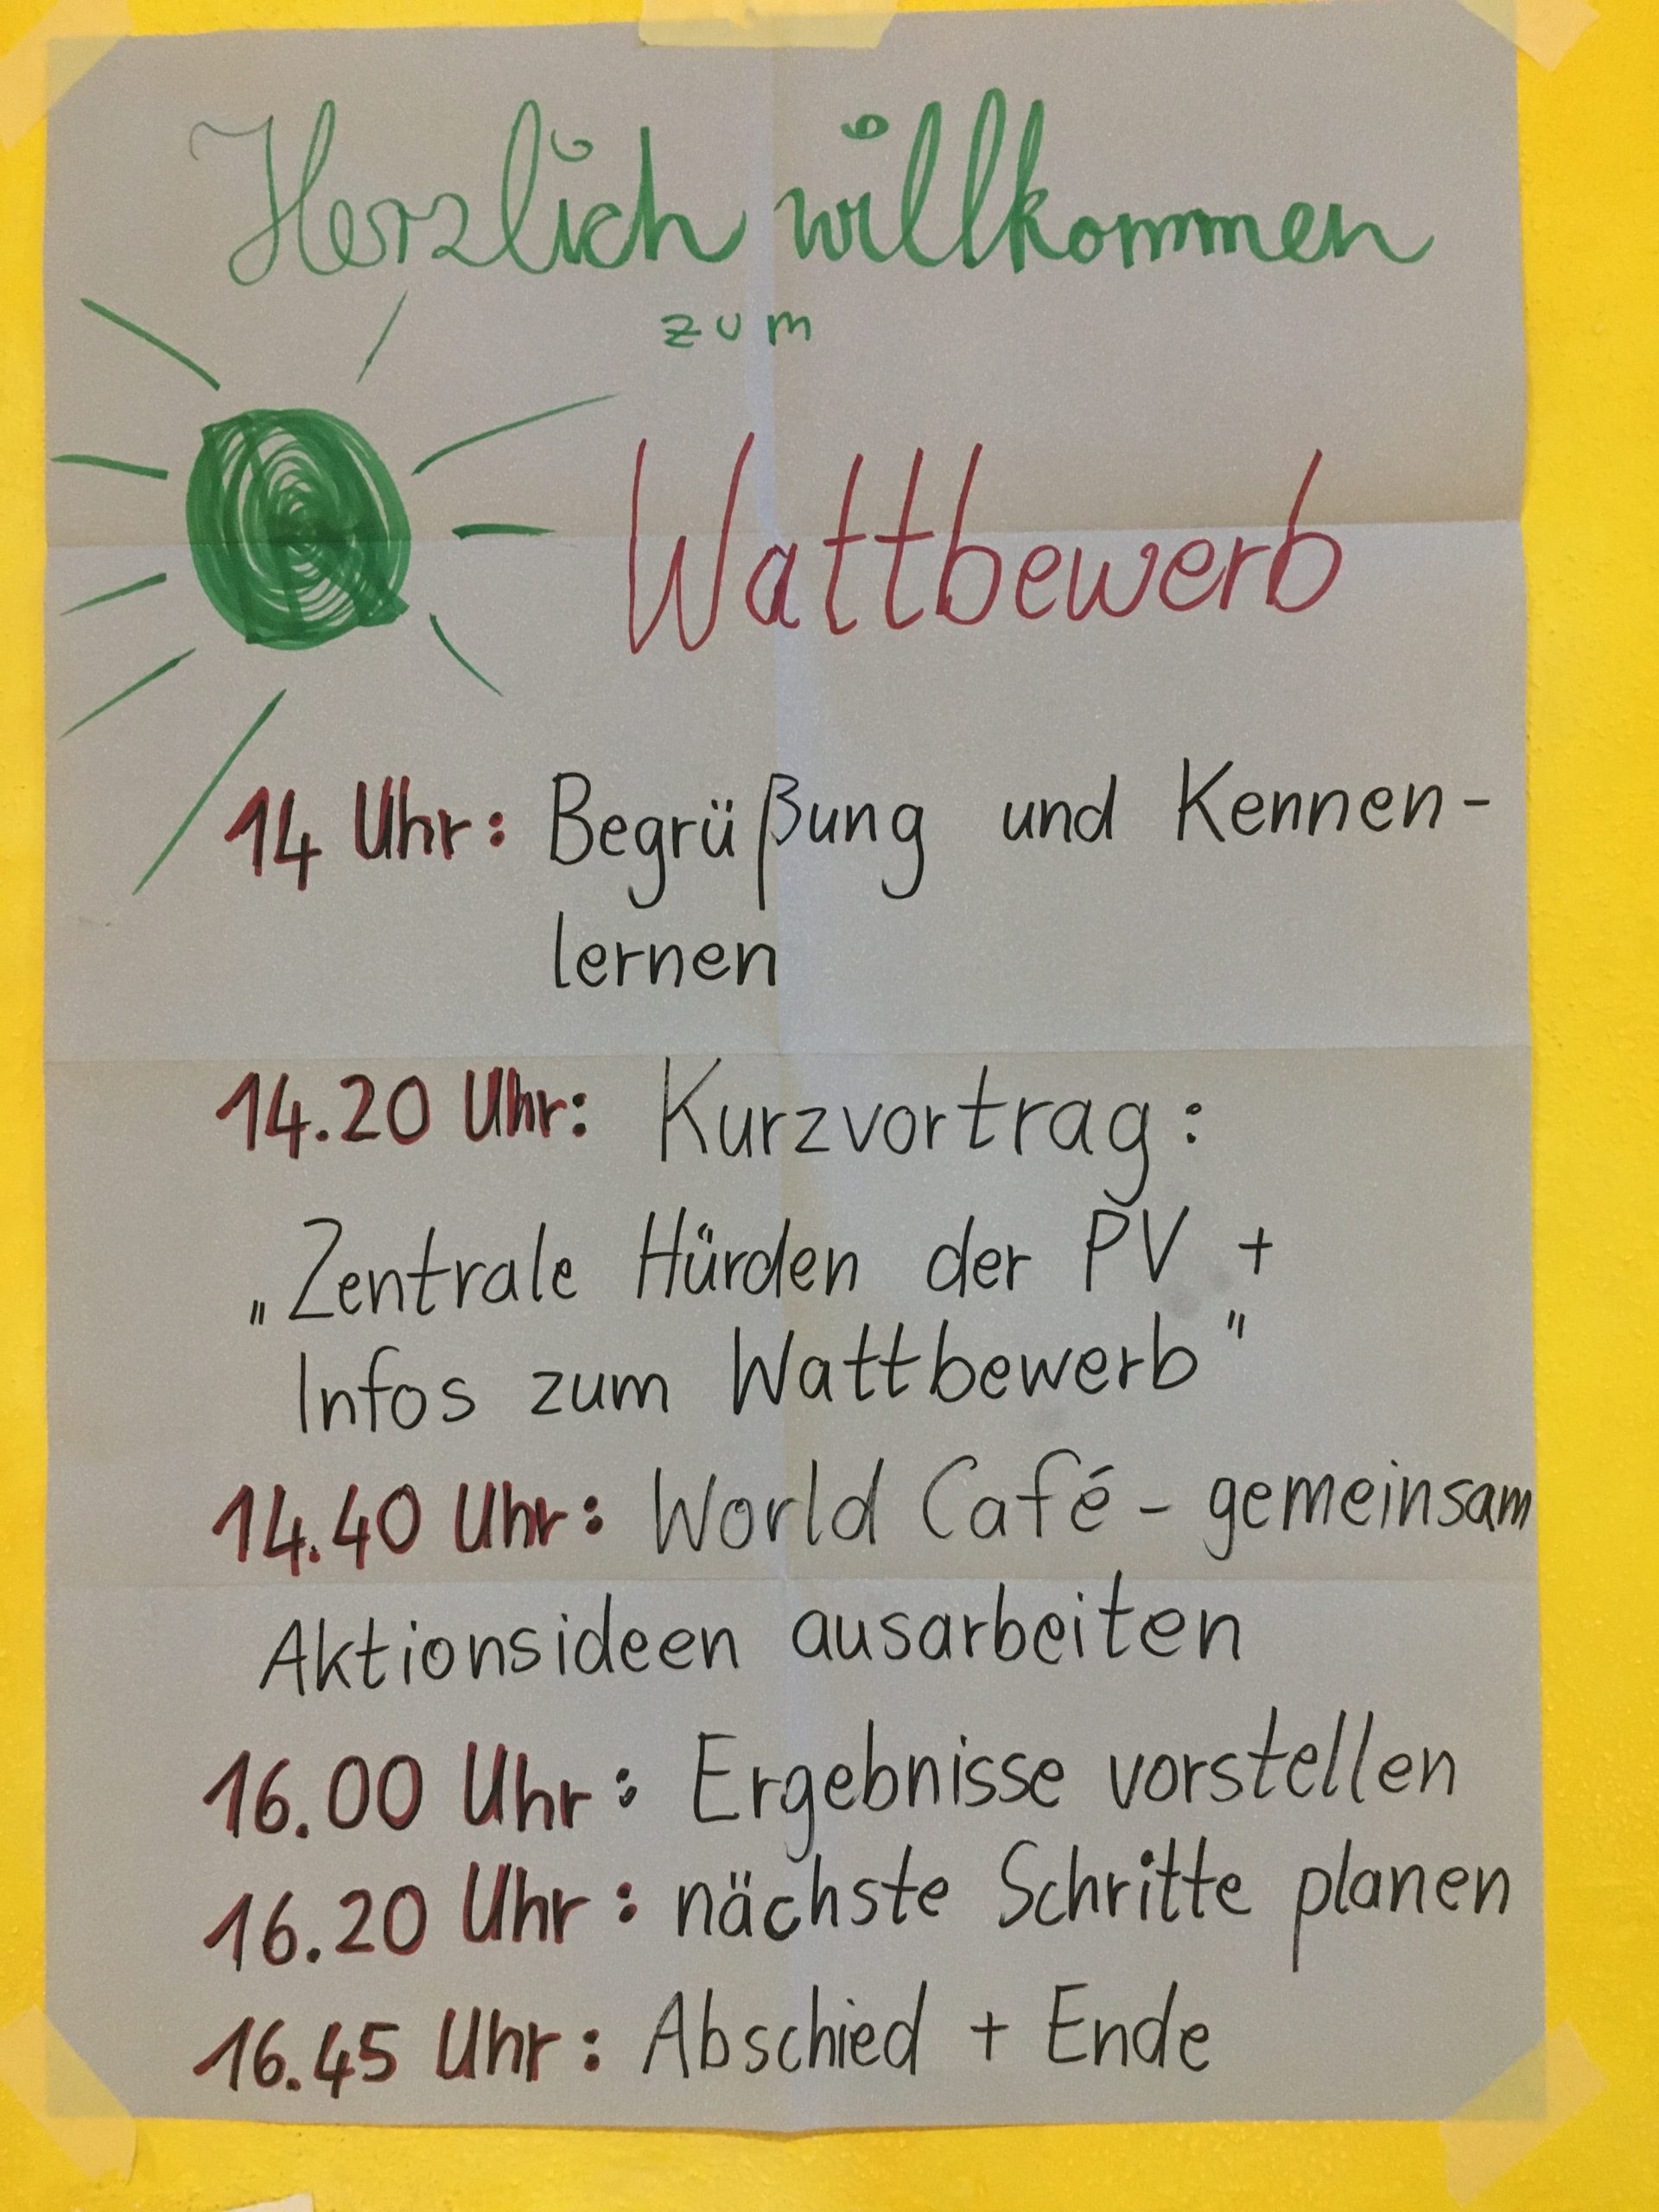 Herzlich willkommen
zum
Wattbewerb
14 Uhr: Begrüßung und Kennen-
lernen
14.20 Uhr: Kurzvortrag:
„Zentrale Hürden der PV +
Infos zum Wattbewerb"
14.40 Uhr: World Café - gemeinsam
Aktionsideen ausarbeiten
16.00 Uhr: Ergebnisse vorstellen
16.20 Uhr: nächste Schritte planen
16.45 Uhr: Abschied + Ende